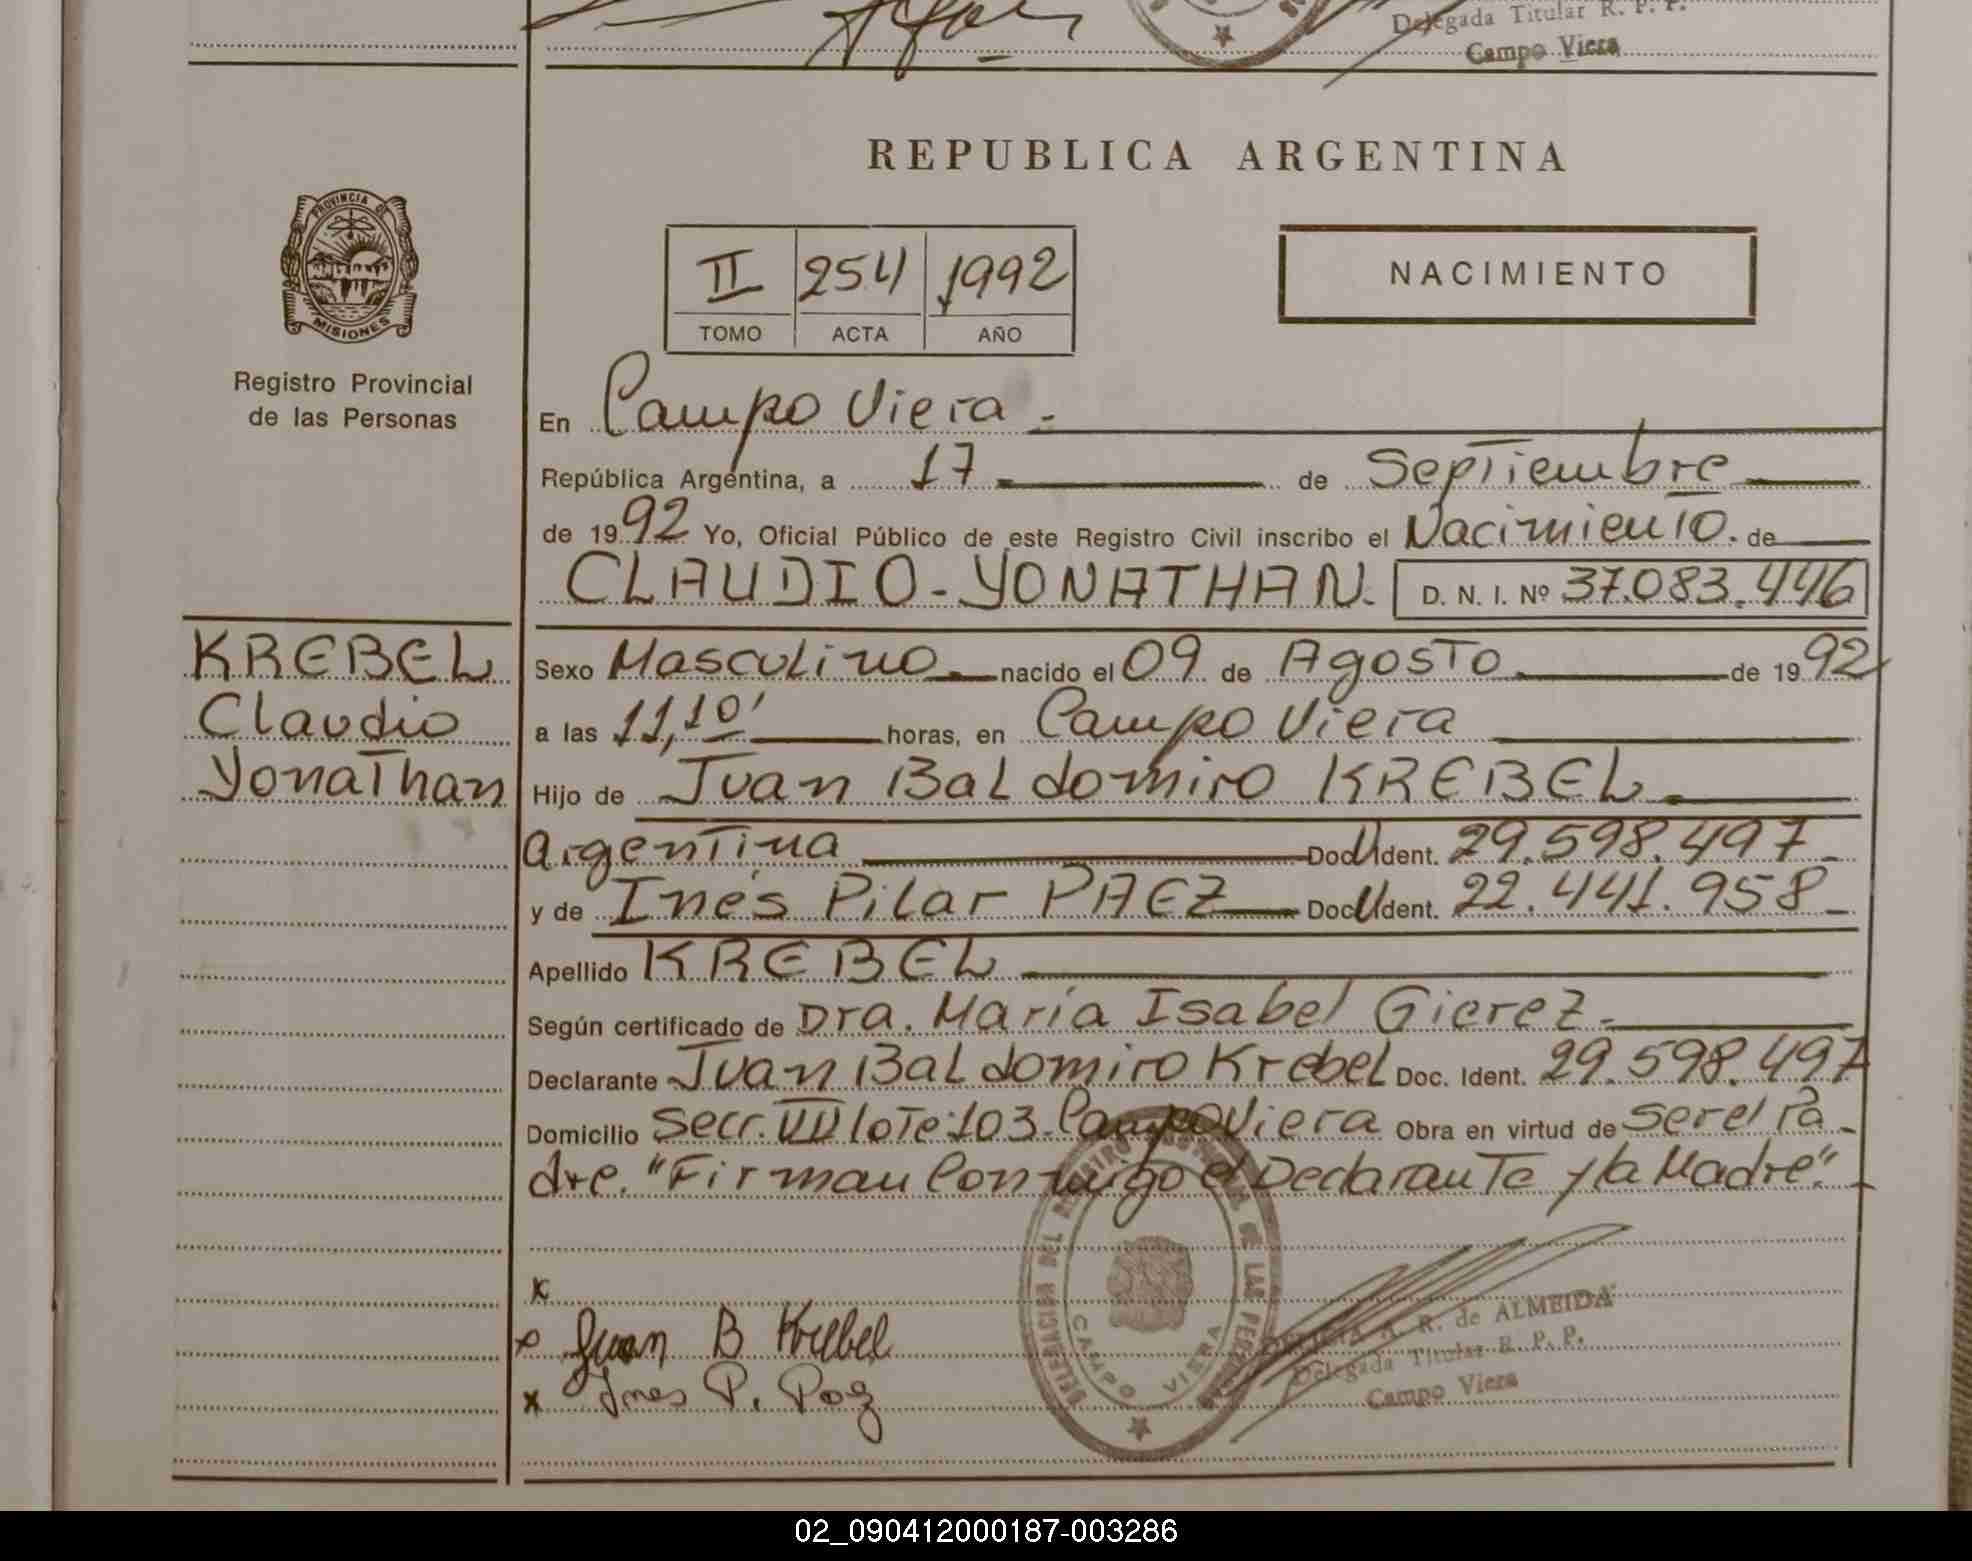 Delegada Titular R. P. P.
Campo Viera
REPUBLICA ARGENTINA
PROVINCIA DE
MISIONES
Registro Provincial
de las Personas
II 254 1992
TOMO ACTA AÑO
NACIMIENTO
En Campo Viera.-
República Argentina, a 17 de Septiembre
de 1992 Yo, Oficial Público de este Registro Civil inscribo el Nacimiento. de
CLAUDIO-YONATHAN. D. N. I. Nº 37.083.446
KREBEL
Claudio
Yonathan
Sexo Masculino nacido el 09 de Agosto de 1992
a las 11,10' horas, en Campo Viera
Hijo de Juan Baldomiro KREBEL
Argentina Doc. Ident. 29.598.497-
y de Inés Pilar PAEZ Doc. Ident. 22.441.958-
Apellido KREBEL
Según certificado de Dra. María Isabel Gierez.
Declarante Juan Baldomiro Krebel Doc. Ident. 29.598.497
Domicilio Secc. VII lote 103-Campo Viera Obra en virtud de ser el Pa-
dre. "Firman Conmigo el Declarante y la Madre".-
x
x Juan B Krebel
x Ines P. Paez
DELEGACION DEL REGISTRO PROVINCIAL DE LAS PERSONAS
CAMPO VIERA
A. R. de ALMEIDA
Delegada Titular R. P. P.
Campo Viera
02_090412000187-003286